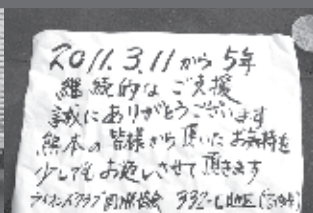 2011.3.11から5年
継続的なご支援
誠にありがとうございます
熊本の皆様から頂いたお気持を
少しでもお返しさせて頂きます
ライオンズクラブ国際協会 332-C地区(宮城)